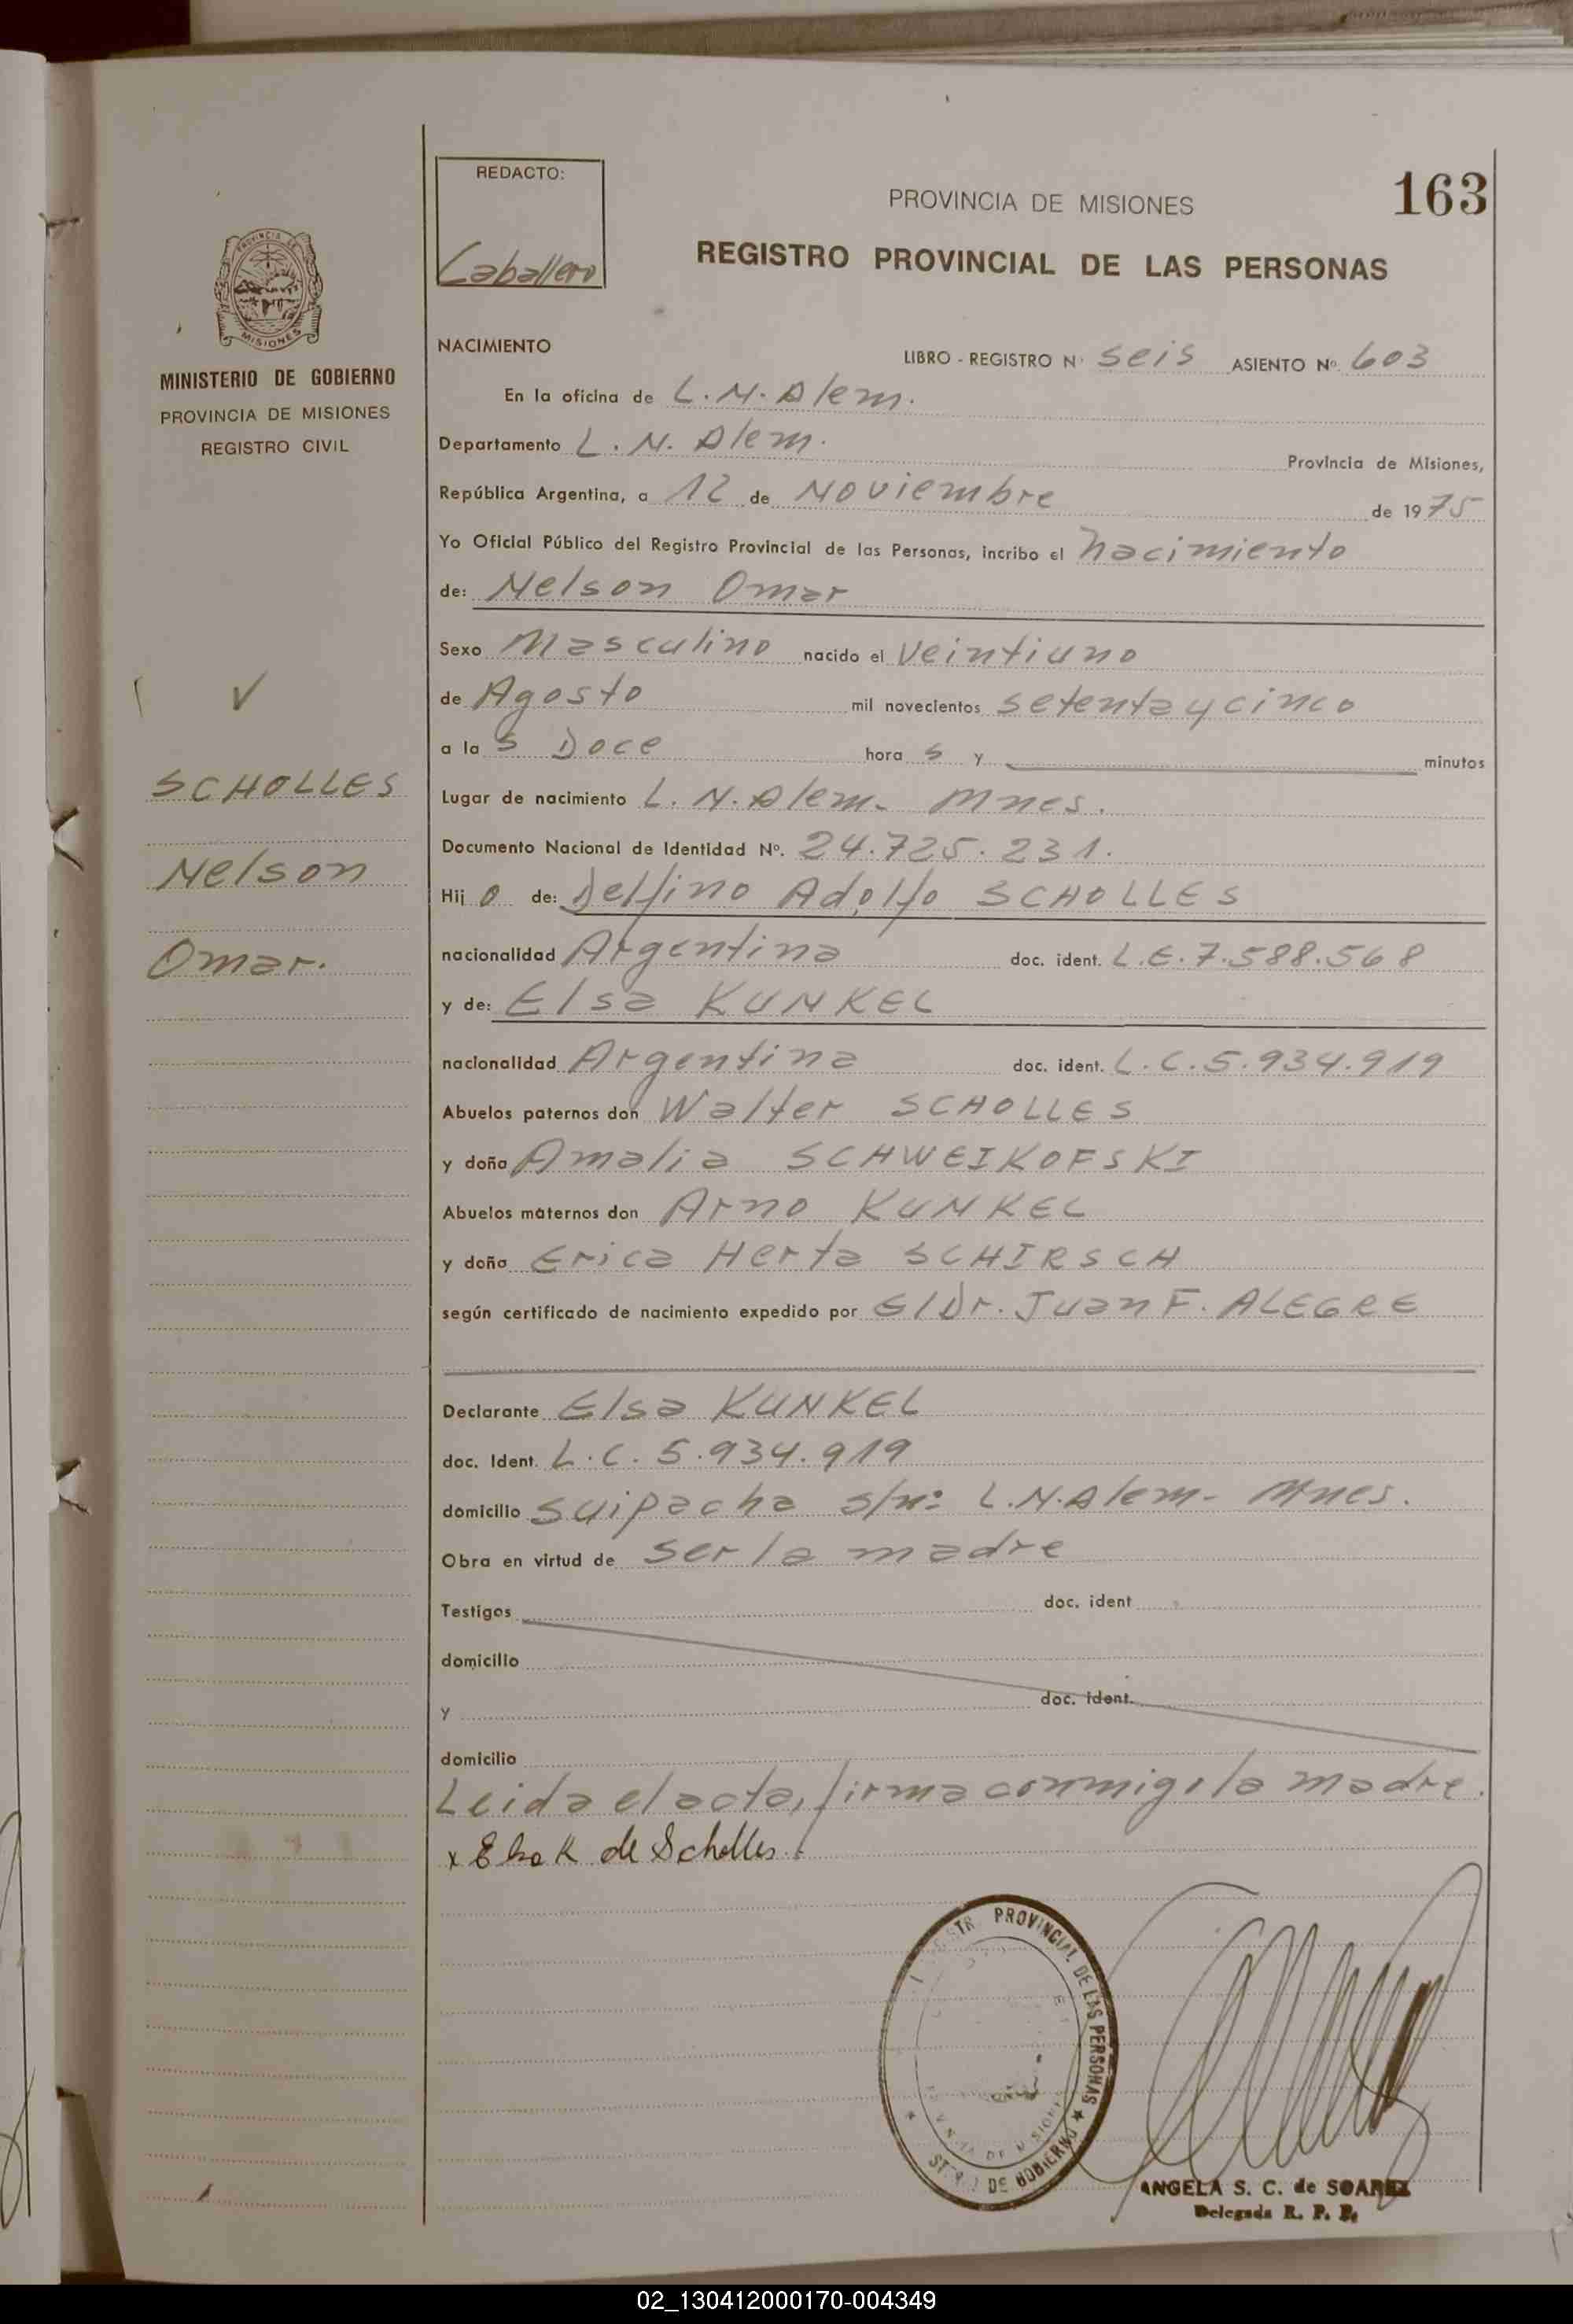 REDACTO:
Caballero
163
PROVINCIA DE MISIONES
REGISTRO PROVINCIAL DE LAS PERSONAS
PROVINCIA DE
MISIONES
MINISTERIO DE GOBIERNO
PROVINCIA DE MISIONES
REGISTRO CIVIL
NACIMIENTO
LIBRO - REGISTRO Nº seis ASIENTO Nº 603
En la oficina de L. N. Alem.
Departamento L. N. Alem. Provincia de Misiones,
República Argentina, a 12 de Noviembre de 1975
Yo Oficial Público del Registro Provincial de las Personas, incribo el nacimiento
de: Nelson Omar
Sexo Masculino nacido el veintiuno
de Agosto mil novecientos setenta y cinco
a las Doce horas y minutos
SCHOLLES
Nelson
Omar.
Lugar de nacimiento L. N. Alem. Mnes.
Documento Nacional de Identidad Nº. 24.725.231.
Hijo de: Delfino Adolfo SCHOLLES
nacionalidad Argentina doc. ident. L.E. 7.588.568
y de: Elsa KUNKEL
nacionalidad Argentina doc. ident. L.C. 5.934.919
Abuelos paternos don Walter SCHOLLES
y doña Amalia SCHWEIKOFSKI
Abuelos maternos don Arno KUNKEL
y doña Erica Herta SCHIRSCH
según certificado de nacimiento expedido por El Dr. Juan F. ALEGRE
Declarante Elsa KUNKEL
doc. Ident. L.C. 5.934.919
domicilio Suipacha s/nº L.N. Alem - Mnes.
Obra en virtud de ser la madre
Testigos doc. ident
domicilio
y doc. ident.
domicilio
Leida el acta, firma conmigo la madre.
x Elsa K de Scholles
PROVINCIAL DE LAS PERSONAS
DE GOBIERNO
ANGELA S. C. de SOAREZ
Delegada R. P. P.
02_130412000170-004349